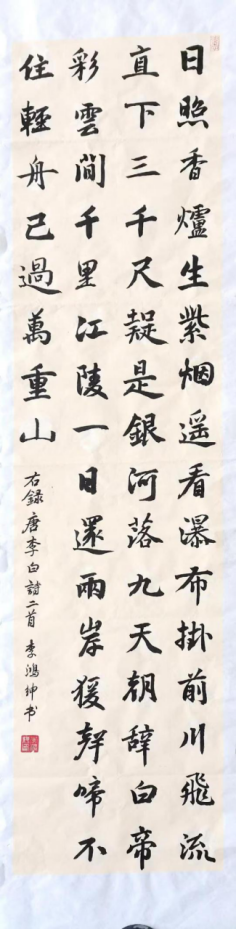 日照香爐生紫烟遥看瀑布掛前川飛流
直下三千尺疑是銀河落九天朝辞白帝
彩雲間千里江陵一日還兩岸猨聲啼不
住輕舟已過萬重山
右録唐李白詩二首 李鴻坤书